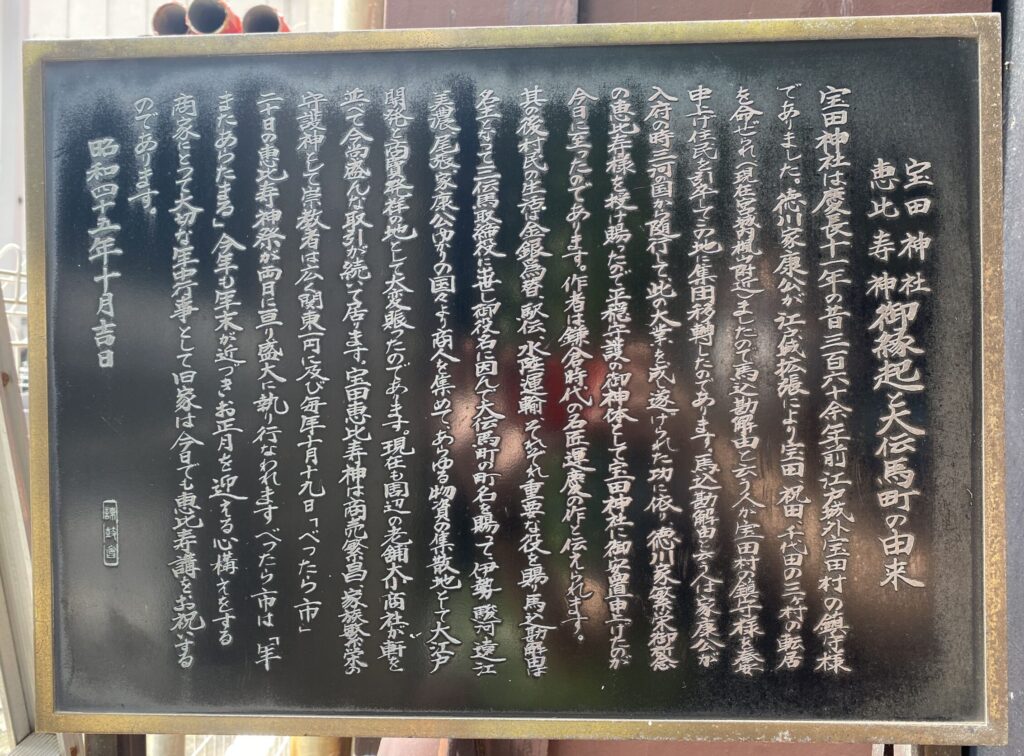 宝田神社
恵比寿神
御縁起と大伝馬町の由来
宝田神社は慶長十一年の昔三百六十余年前江戸城外宝田村の鎮守様
でありました、徳川家康公が江戸城拡張により宝田、祝田、千代田の三ヶ村の転居
を命ぜられ(現在宮城内楓山附近)ましたので馬込勘解由と云う人が宝田村の鎮守様を奉安
申上げ住民を引率してこの地に集団移転したのであります、馬込勘解由と云う人は家康公が
入府の時三河国から随行して此の大業を成し遂げられた功に依り、徳川家繁栄御祈念
の恵比寿様を授け賜ったので平穏守護の御神体として宝田神社に御安置申上げたのが
今日に至ったのであります。作者は鎌倉時代の名匠運慶の作と伝えられます。
其の後村民の生活は金銀為替、駅伝、水陸運輸それぞれ重要な役を賜り馬込勘解由は
名主となって三伝馬取締役に出世し御役名に因んで大伝馬町の町名を賜って伊勢、駿河、遠江
美濃、尾張、家康公ゆかりの国々より商人を集めて、あらゆる物資の集散地として大江戸
開発と商賈発祥の地として大変賑ったのであります。現在も周辺の老舗大小商社が軒を
並べて今尚盛んな取引が続いて居ります。宝田恵比寿神は商売繁昌、家族繁栄の
守護神として崇敬者は広く関東一円に及び毎年十月十九日「べったら市」
二十日の恵比寿神祭が両日に亘り盛大に執り行なわれますべったら市は「年
またあらたまる」今年も年末が近づきお正月を迎える心構えをする
商家にとって大切な年中行事として旧家は今日でも恵比寿講をお祝いする
のであります。
昭和四十五年十月吉日